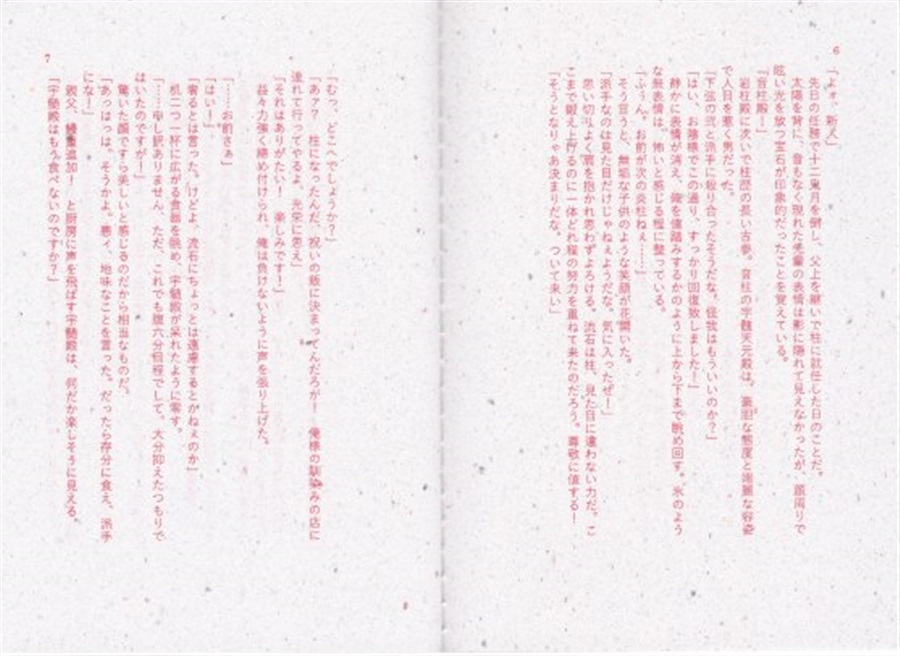 6
「よォ、新入」
先日の任務で十二鬼月を倒し、父上を継いで柱に就任した日のことだ。
太陽を背に、音もなく現れた先輩の表情は影に隠れて見えなかったが、顔周りで
眩い光を放つ宝石が印象的だったことを覚えている。
「音柱殿！」
岩柱殿に次いで柱歴の長い古参。音柱の宇髄天元殿は、豪胆な態度と端麗な容姿
で人目を惹く男だった。
「下弦の弐と派手に殺り合ったそうだな。怪我はもういいのか？」
「はい、お陰様でこの通り、すっかり回復致しました！」
静かに表情が消え、俺を値踏みするかのように上から下まで眺め回す。氷のよう
な無表情は、怖いと感じる程に整っている。
「ふぅん。お前が次の炎柱ねぇ……」
そう言うと、無垢な子供のような笑顔が花開いた。
「派手なのは見た目だけじゃねぇようだな。気に入ったぜ！」
思い切りよく肩を抱かれ思わずよろける。流石は柱、見た目に違わない力だ。こ
こまで鍛え上げるのに一体どれ程の努力を重ねて来たのだろう。尊敬に値する！
「そうとなりゃあ決まりだな、ついて来い」
7
「むっ、どこへでしょうか？」
「あァ？　柱になったんだ、祝いの飯に決まってんだろが！　俺様の馴染みの店に
連れて行ってやるよ、光栄に思え」
「それはありがたい！　楽しみです！」
益々力強く締め付けられ、俺は負けないように声を張り上げた。
「……お前さぁ」
「はい！」
「奢るとは言った。けどよ、流石にちょっとは遠慮するとかねぇのか」
机二つ一杯に広がる食器を眺め、宇髄殿が呆れたように零す。
「……申し訳ありません、ただ、これでも腹六分目程でして。大分抑えたつもりで
はいたのですが！」
驚いた顔ですら美しいと感じるのだから相当なものだ。
「あっはっは、そうかよ。悪ィ、地味なことを言った。だったら存分に食え、派手
にな！」
親父、鰻重追加！　と厨房に声を飛ばす宇髄殿は、何だか楽しそうに見える。
「宇髄殿はもう食べないのですか？」